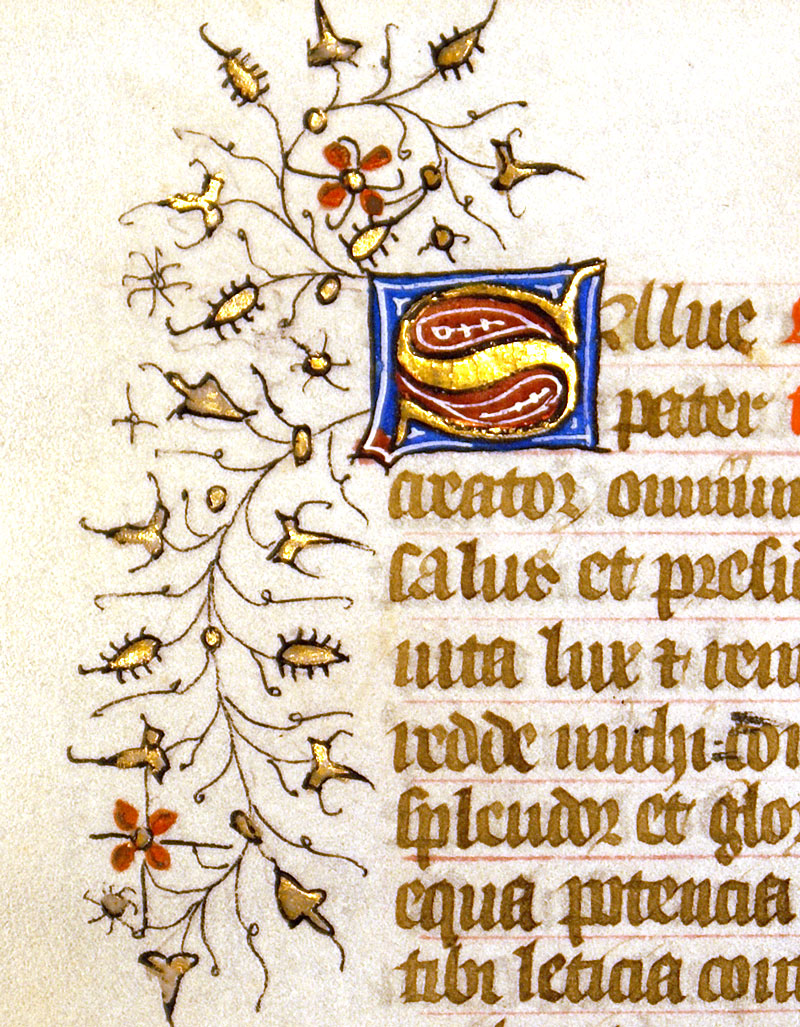 Sallue
pater
creator omniu
salus et presi
uita lux ⁊
redde michi con
splendor et glo
equa potencia
tibi leticia con